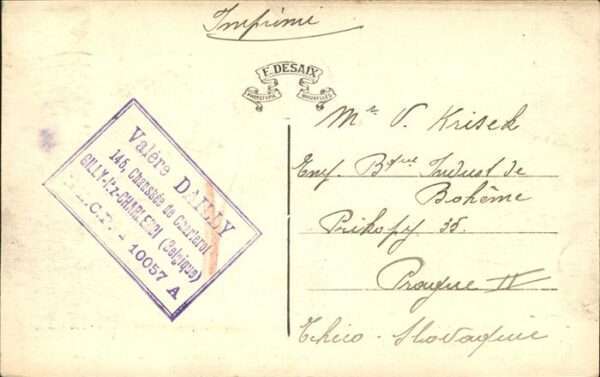 Imprimé
F. DESAIX
BRUXELLES
Valère DAILLY
145, Chaussée de Charleroi
GILLY-l'z-CHARLEROI (Belgique)
10057 A
Mr V. Krisek
Bque Indust de
Bohême
Prikopy 35.
Prague II
Tchéco-Slovaquie